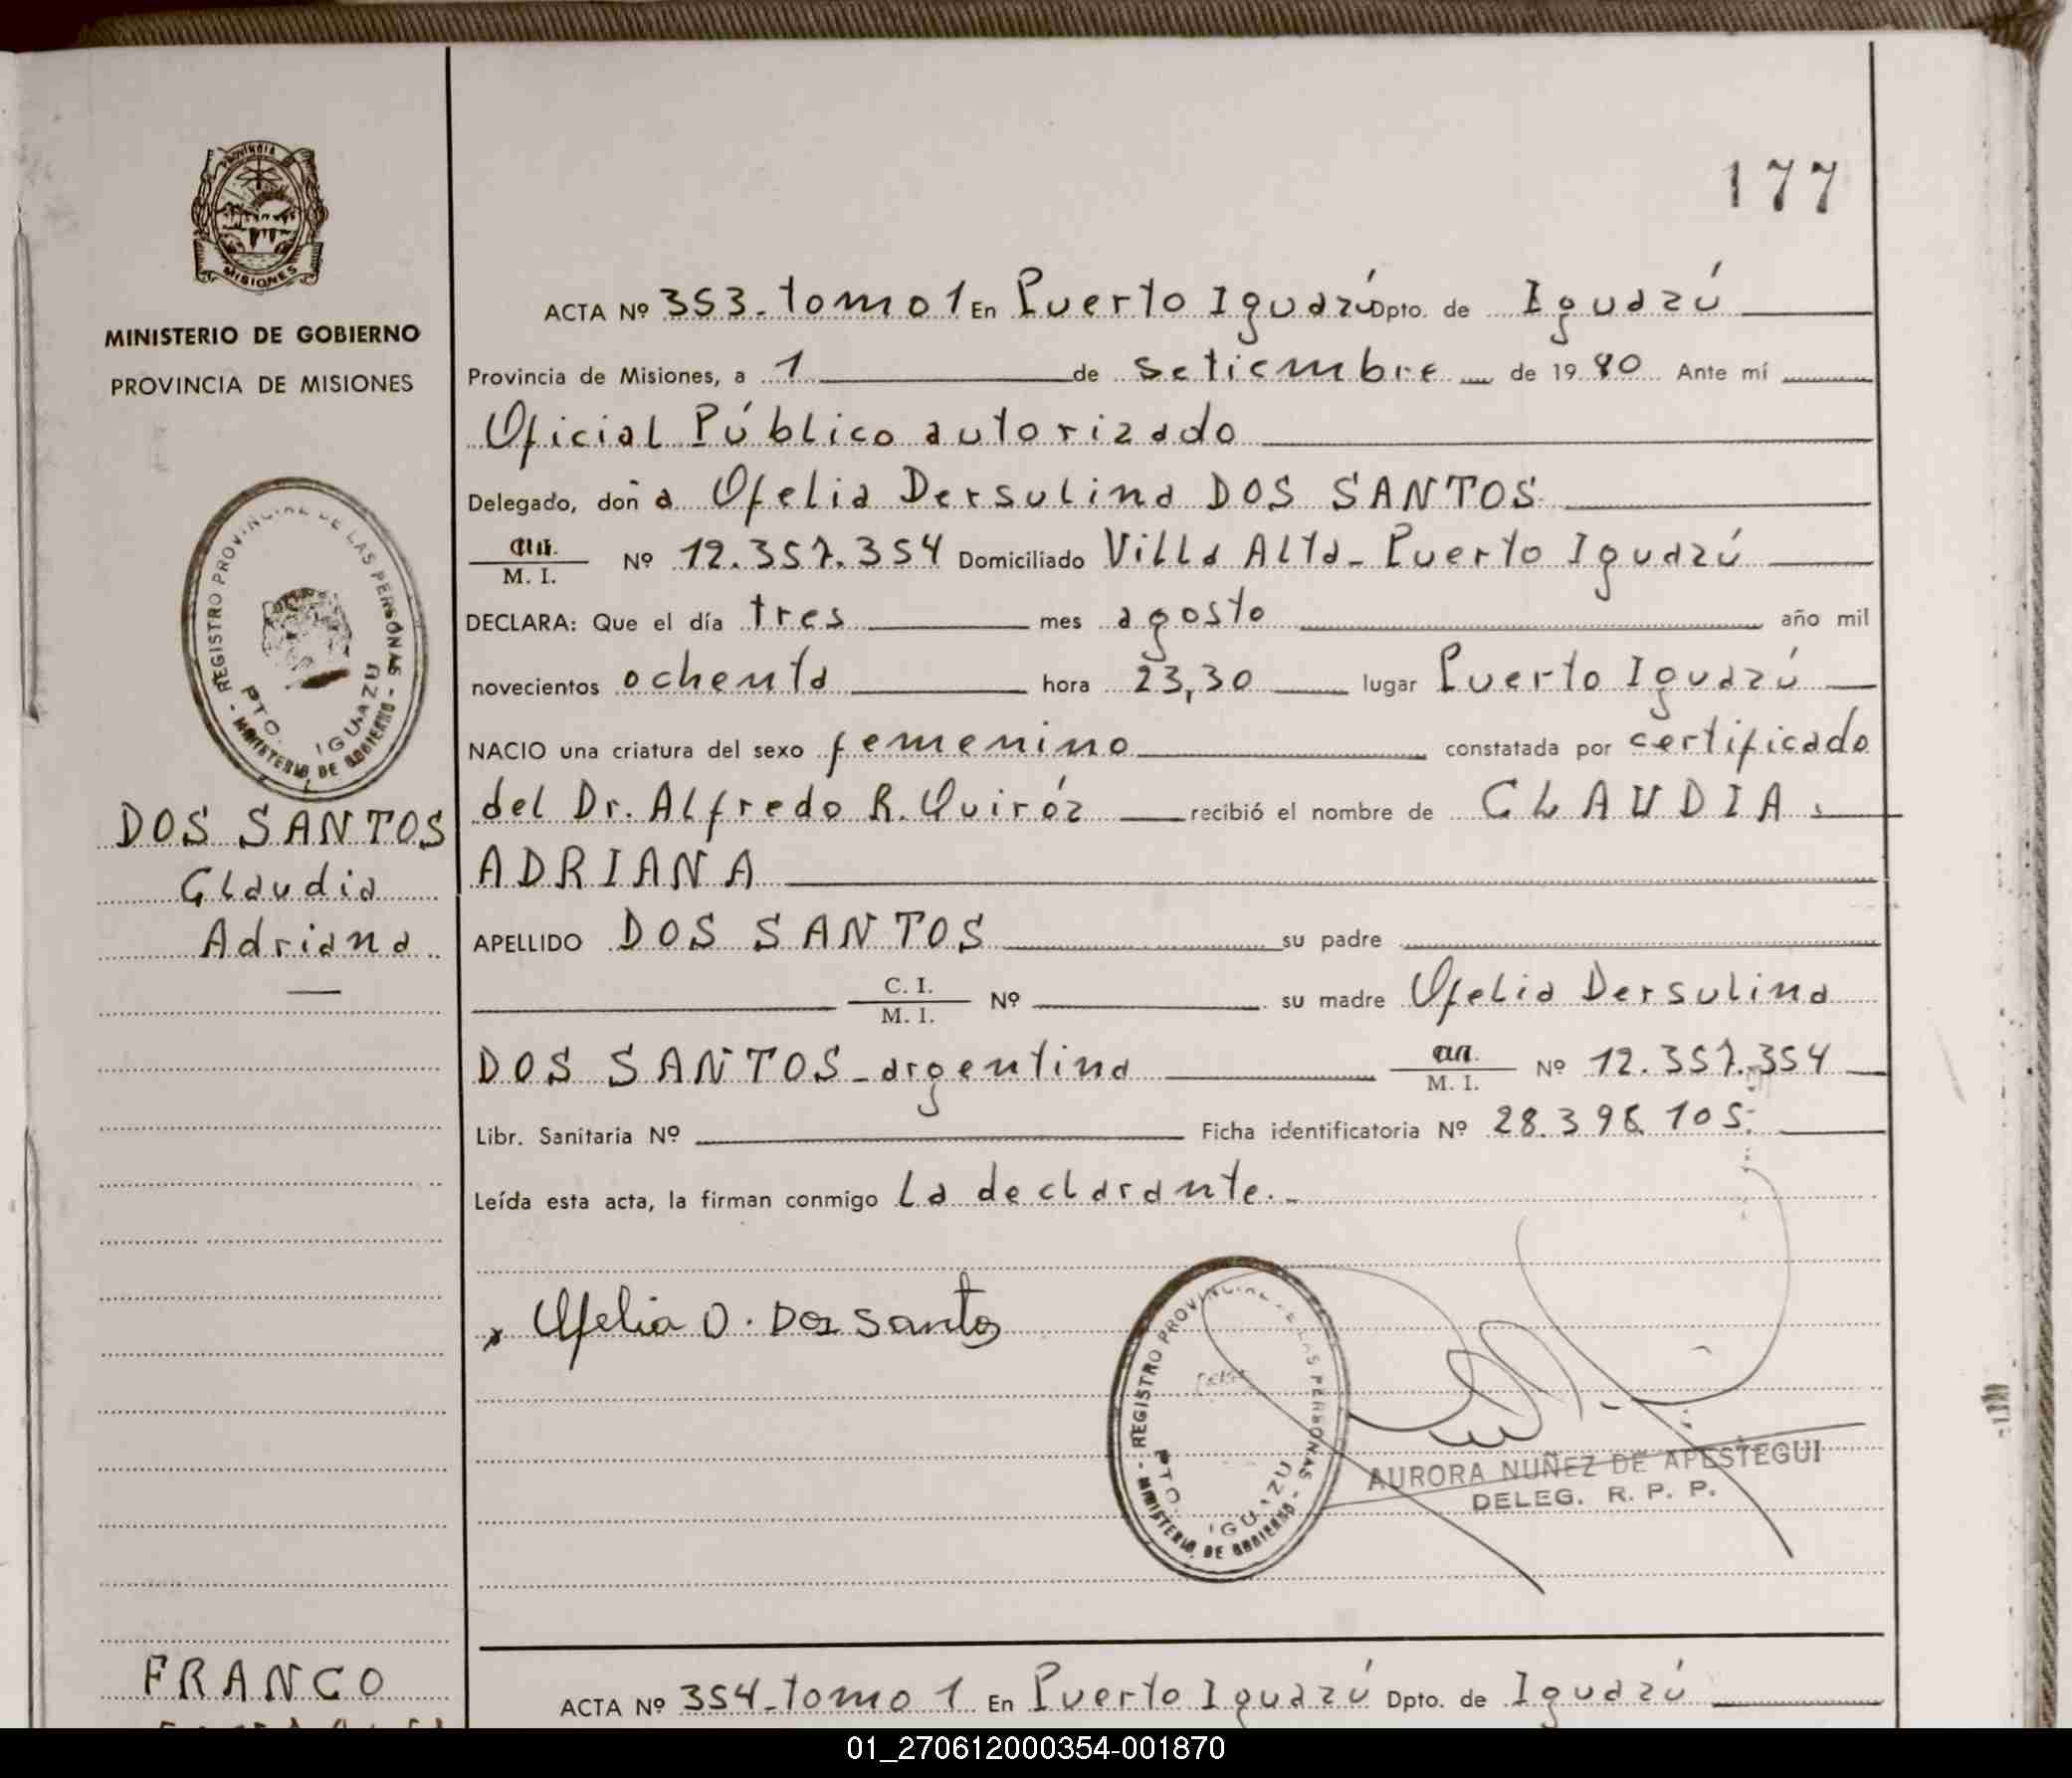 177
PROVINCIA
MISIONES
MINISTERIO DE GOBIERNO
PROVINCIA DE MISIONES
REGISTRO PROVINCIAL DE LAS PERSONAS - MINISTERIO DE GOBIERNO -
PTO. IGUAZU
DOS SANTOS
Claudia
Adriana
ACTA Nº 353-tomo 1 En Puerto Iguazú Dpto. de Iguazú
Provincia de Misiones, a 1 de setiembre de 1980 Ante mí
Oficial Público autorizado
Delegado, doña Ofelia Dersulina DOS SANTOS
M. I. Nº 12.357.354 Domiciliado Villa Alta - Puerto Iguazú
DECLARA: Que el día tres mes agosto año mil
novecientos ochenta hora 23,30 lugar Puerto Iguazú
NACIO una criatura del sexo femenino constatada por certificado
del Dr. Alfredo R. Quiróz recibió el nombre de CLAUDIA
ADRIANA
APELLIDO DOS SANTOS su padre
C. I. / M. I. Nº su madre Ofelia Dersulina
DOS SANTOS - argentina M. I. Nº 12.357.354
Libr. Sanitaria Nº Ficha identificatoria Nº 28.396.105.
Leída esta acta, la firman conmigo La declarante.-
x Ofelia D. Dos Santos
REGISTRO PROVINCIAL DE LAS PERSONAS - MINISTERIO DE GOBIERNO -
PTO. IGUAZU
AURORA NUÑEZ DE APESTEGUI
DELEG. R. P. P.
FRANCO
ACTA Nº 354-tomo 1 En Puerto Iguazú Dpto. de Iguazú
01_270612000354-001870